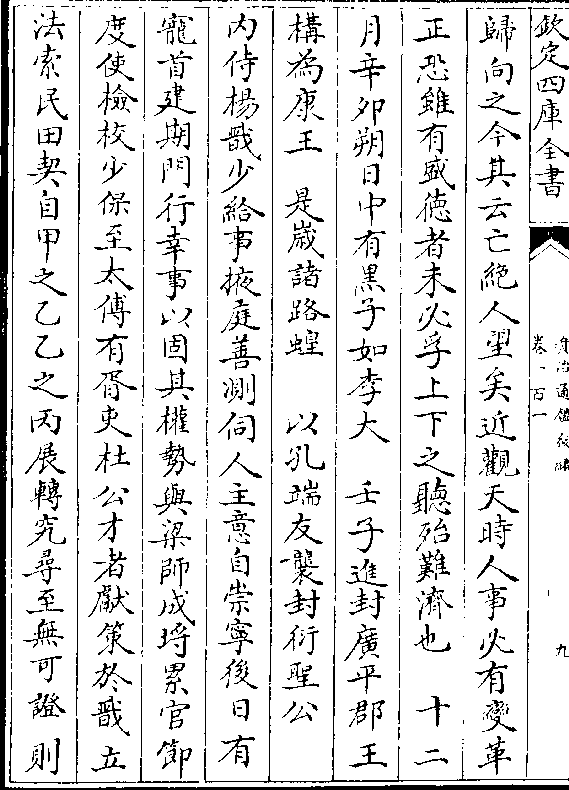 欽定四庫全書
資治通鑑後編
卷一百一
九
歸向之今其云亡絶人望矣近觀天時人事必有變革
正恐雖有盛徳者未必孚上下之聽殆難濟也　十二
月辛卯朔日中有黒子如李大　壬子進封廣平郡王
構為康王　是嵗諸路蝗　以孔端友襲封衍聖公
内侍楊戩少給事掖庭善測伺人主意自崇寧後日有
寵首建期門行幸事以固其權勢與梁師成埒累官節
度使檢校少保至太傅有胥吏杜公才者獻策於戩立
法索民田契自甲之乙乙之丙展轉究尋至無可證則